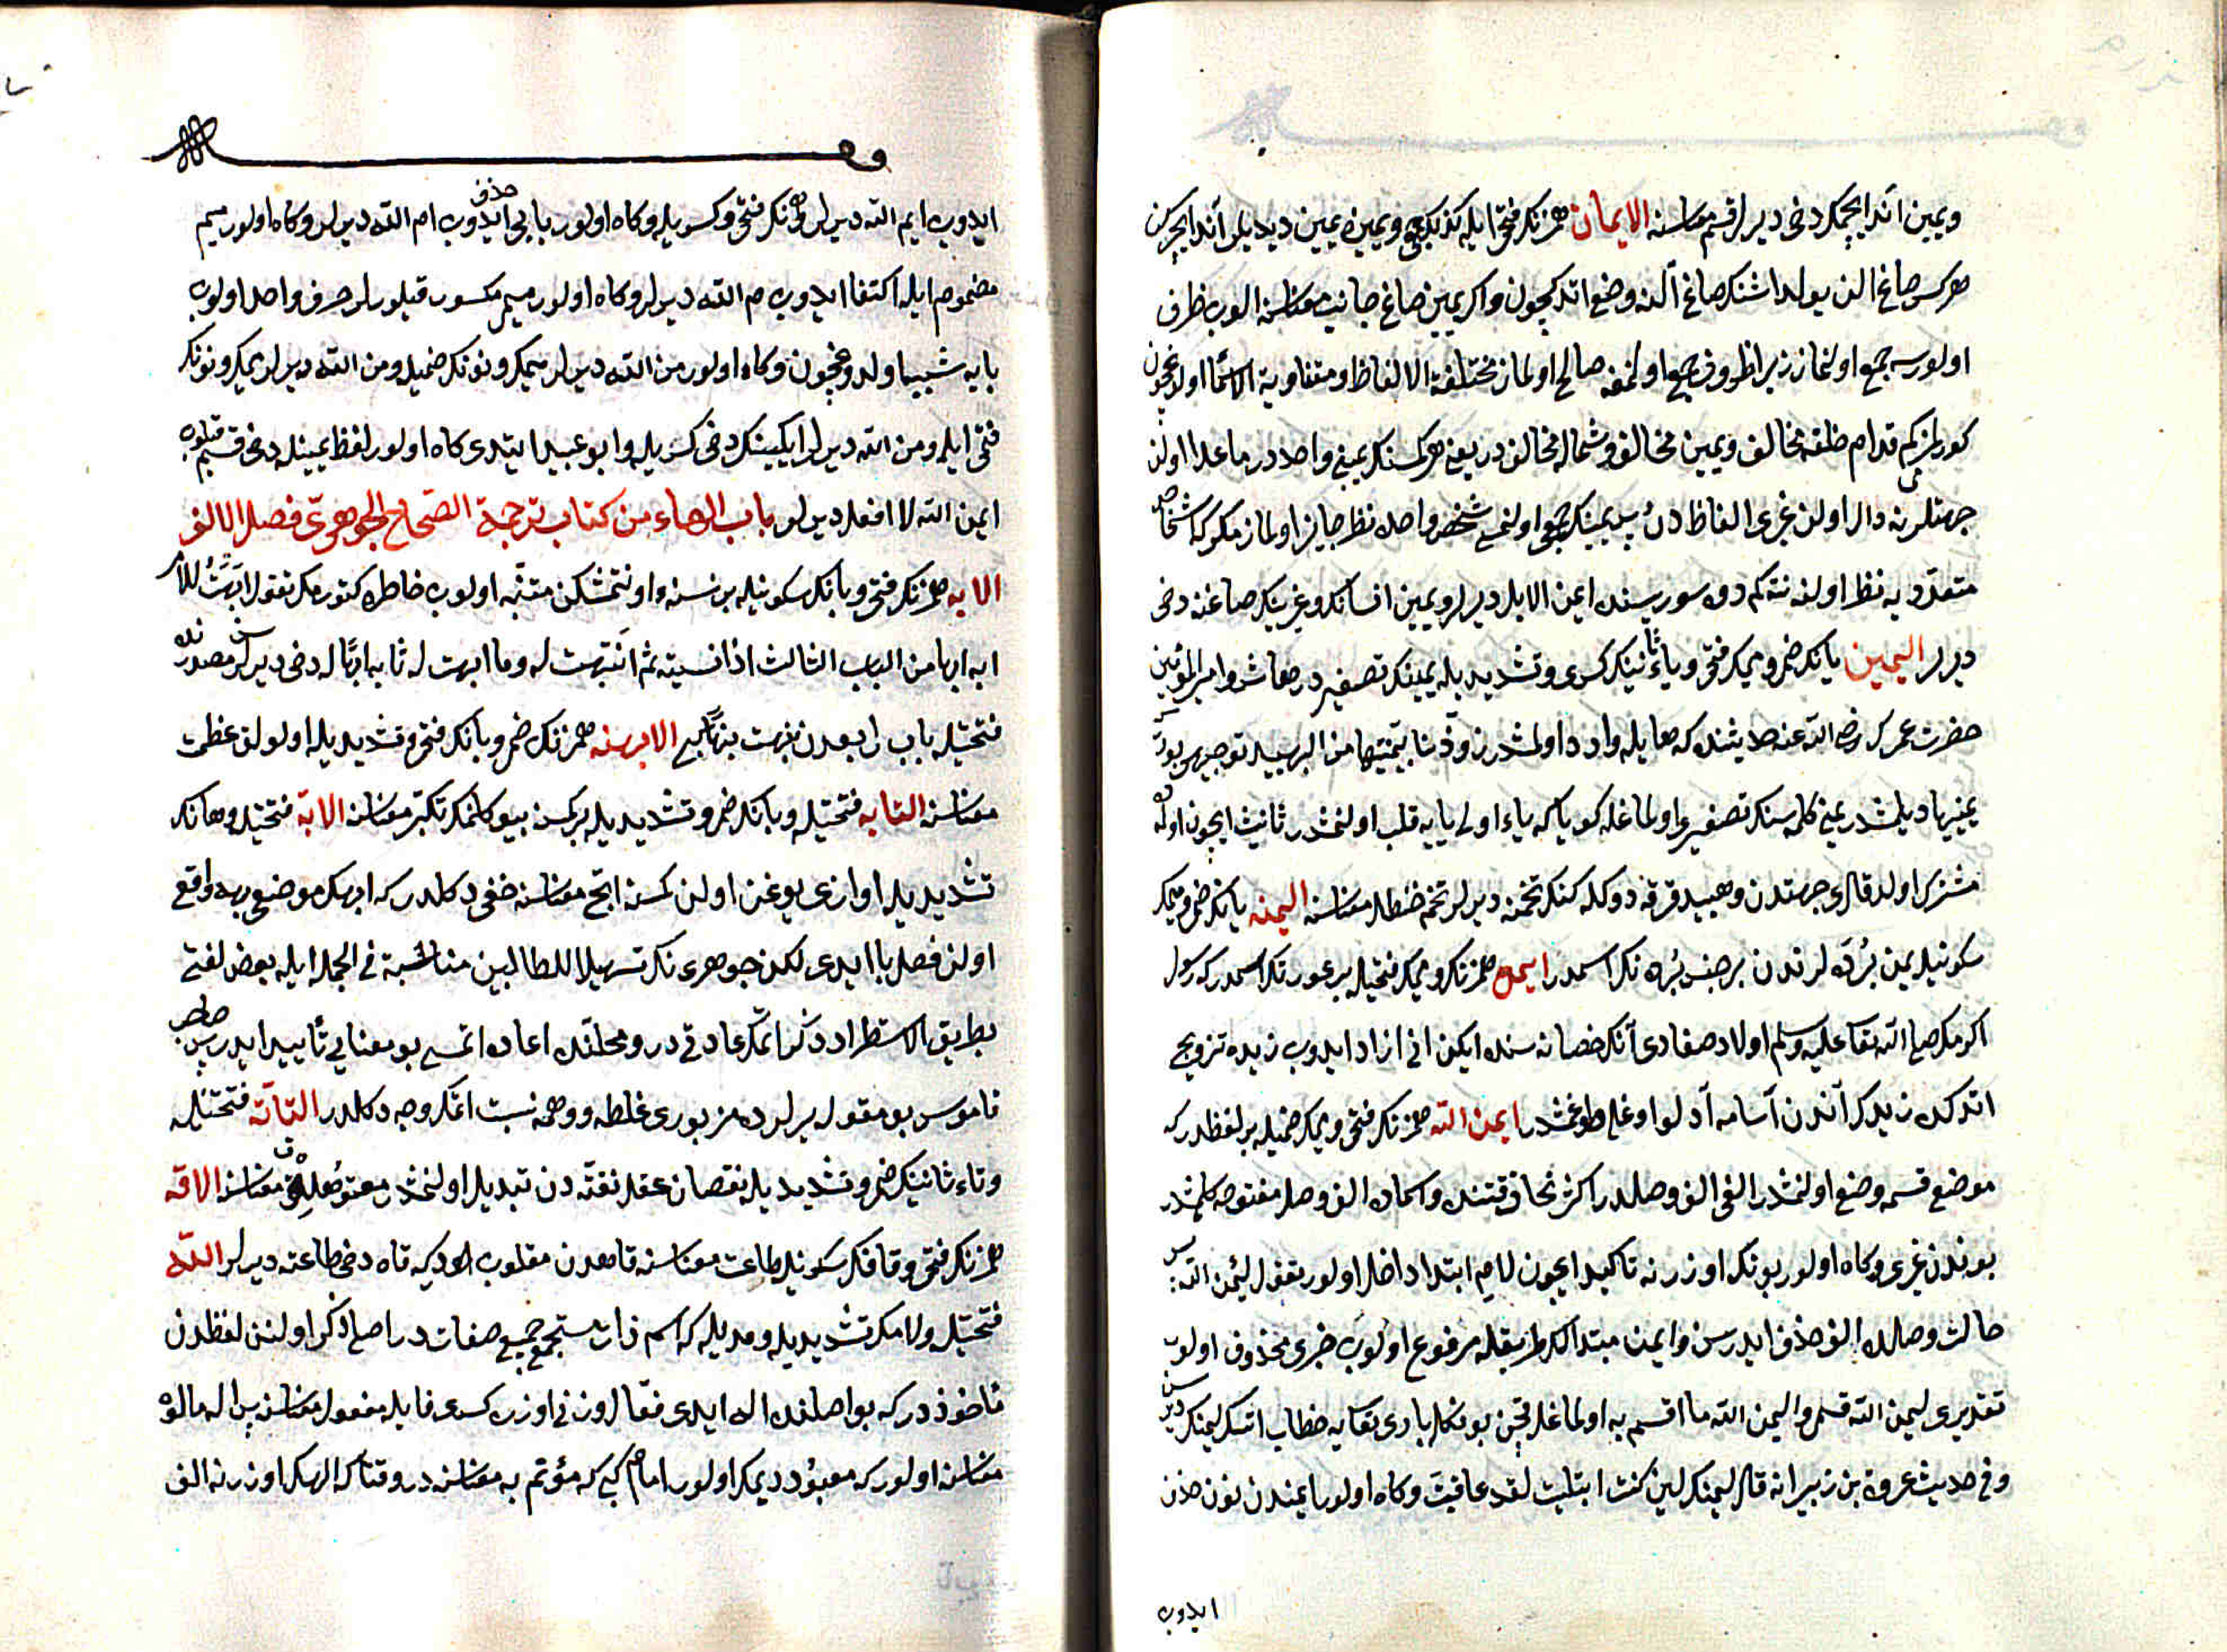 ويمين اند ايچمكه دخى ديرلر قسم معناسنه الايمان همزنك فتحى ايله كذلك جمع ويمين يمين ديديلر اند ايچركن
هركس صاغ الن يولداشنك صاغ النه وضع اتدكيچون واكر يمين صاغ جانب معناسنه الوب ظرف
اولورسه جمع اولنماز زيرا ظروف جمع اولنمغه صالح اولماز مختلفة الالفاظ ومتفاوتة الاسما اولدوغيچون
كورلمزمى كم قدام خلفه مخالف ويمين مخالف وشماله مخالف در يعنى هر كسنك يمينى واحددر ماعدا اولن
جهتلرنه دال اولن غيرى الفاظ دن پس يمينك جمع اولنمسى شخص واحده نظر جايز اولماز مكر كه اشخاص
متعدديه نظر اولنه نته كم دوه سوريسنده ايمن الابل ديرلر ويمين انسانك وغيرينك صاغنه دخى
ديرلر اليمين يانك ضمى وميمك فتحى وياء ثانينك كسرى وتشديديله يمينك تصغيردر معاش وامير المؤمنين
حضرت عمرك رضى الله عنه حديثنده كه هايله وارد اولمشدر زودتنا يمينيها من الهبيد توجيهى بودر كه
يمينيها ديلمشدر يمينى كلمه سنك تصغيرى اولماغله كويا كه ياء اولى يايه قلب اولنمشدر تانيث ايچون اولده
مشترك اولدقلرى جهتدن وهبيد قرقه دوكله كنك تخمنه ديرلر تخم حنظل معناسنه اليمنه يانك ضمى وميمك
سكونيله يمن برده لرندن بر جنس برده نك اسمدر ايمن همزنك وميمك فتحيله بر عورتك اسمدر كه رسول
اكرمك صلى الله تعالى عليه وسلم اولاد صفادى آنك حضانه سنده ايكن انى ازاد ايدوب زيده تزويج
اتدكده زيدك آندن آسامه آدلو اوغلى طوغمشدر ايمن الله همزنك فتحى وميمك ضميله بر لفظدر كه
موضع قسمه وضع اولنمشدر الفى الف وصلدر اكثر نحاة قتنده واسماده الف وصل مفتوحه كلمشدر
بوندن غيرى وكاه اولور بونك اوزرنه تاكيد ايچون لام ابتدا داخل اولور تقول ليمن الله پس
حالت وصلده الف حذف ايدرسن وايمن مبتدالك طريقله مرفوع اولوب خبرى محذوف اولوب
تقديرى ليمن الله قسمى واليمن الله ما اقسم به اولماغله قچن بونكله بارى تعالايه خطاب اتسك ليمنك ديرسن
وفى حديث عروة بن زبير انه قال ليمنك لين كنت ابتليت لقد عافيت وكاه اولور ايمندن نون حذف
ايدوب
ايدوب ايم الله ديرلر همزنك فتحى وكسريله وكاه اولور يايى حذف ايدوب ام الله ديرلر وكاه اولور ميم
مضموم ايله اكتفا ايدوب م الله ديرلر وكاه اولور ميمى مكسور قيلورلر حرف واحد اولوب
بايه شبيه اولدوغيچون وكاه اولور من الله ديرلر ميمك ونونك ضميله ومن الله ديرلر ميمك ونونك
فتحى ايله ومن الله ديرلر ايكيسنك دخى كسريله وابو عبيد ايتدى كاه اولور لفظ يمينله دخى قسم قيلوب
ايمن الله لا افعل ديرلر باب الهاء من كتاب ترجمة الصحاح الجوهرى فصل الالف
الابه همزنك فتحى وبانك سكونيله بر نسنه اونتمشكن متنبه اولوب خاطره كتورمك تقول ابهت للامر
ابه ابها من الباب الثالث اذا نسيته ثم انتبهت له وما ابهت له تا به ابها له دخى ديرلر مصدرنده
فتحتيله باب رابعدن نبهت نبها كبى الابهه همزنك ضمى وبانك فتحى وتشديديله اولولق عظمت
معناسنه التابه فتحتيله وبانك ضمى وتشديديله بر كسنه بيوكلنمك تكبر معناسنه الابه فتحتيله وهانك
تشديديله اوازى بوغن اولن كسنه ابح معناسنه خفى دكلدر كه ابهك موضعى بهه واقع
اولن فصل با ايدى لكن جوهرى نك تسهيلا للطالبين مناسبة فى الجمله ايله بعض لغتى
بطريق الاستطراد ذكر اتمك عادتى در ومحلنده اعاده اتمسى بو معنايى تأييد ايدر پس صاحب
قاموس بو مقوله يرلرده مزبورى غلطه ووهمه نسبت اتمك وجه دكلدر التاته فتحتيله
وتاء ثانينك ضمى وتشديديله نقصان عقل نفته دن تبديل اولنمشدر معتوهلق معناسنه الاقه
همزنك فتحى وقافك سكونيله طاعت معناسنه قاهدن مقلوب اولديكه قاه دخى طاعته ديرلر الله
فتحتيله ولامك تشديديله ومديله كه اسم ذات مستجمع جميع صفات در اصلى ذكر اولنن لفظدن
مأخوذدر كه بو اصلنده اله ايدى فعال وزنى اوزره كسرى فا يله مفعول معناسنه پس اله مالوه
معناسنه اولور كه معبود ديمك اولور امام كبى كه مؤتم به معناسنه در وقتا كه الهك اوزرنه الف